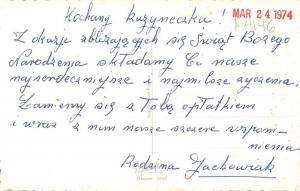 Kochany Kuzyneczku!
MAR 24 1974
Z okazji zbliżających się Świąt Bożego
Narodzenia składamy Ci nasze
najserdeczniejsze i najmilsze życzenia.
Łamiemy się z Tobą opłatkiem
i wraz z nim nasze szczere wspom-
nienia
Rodzina Jachowiak